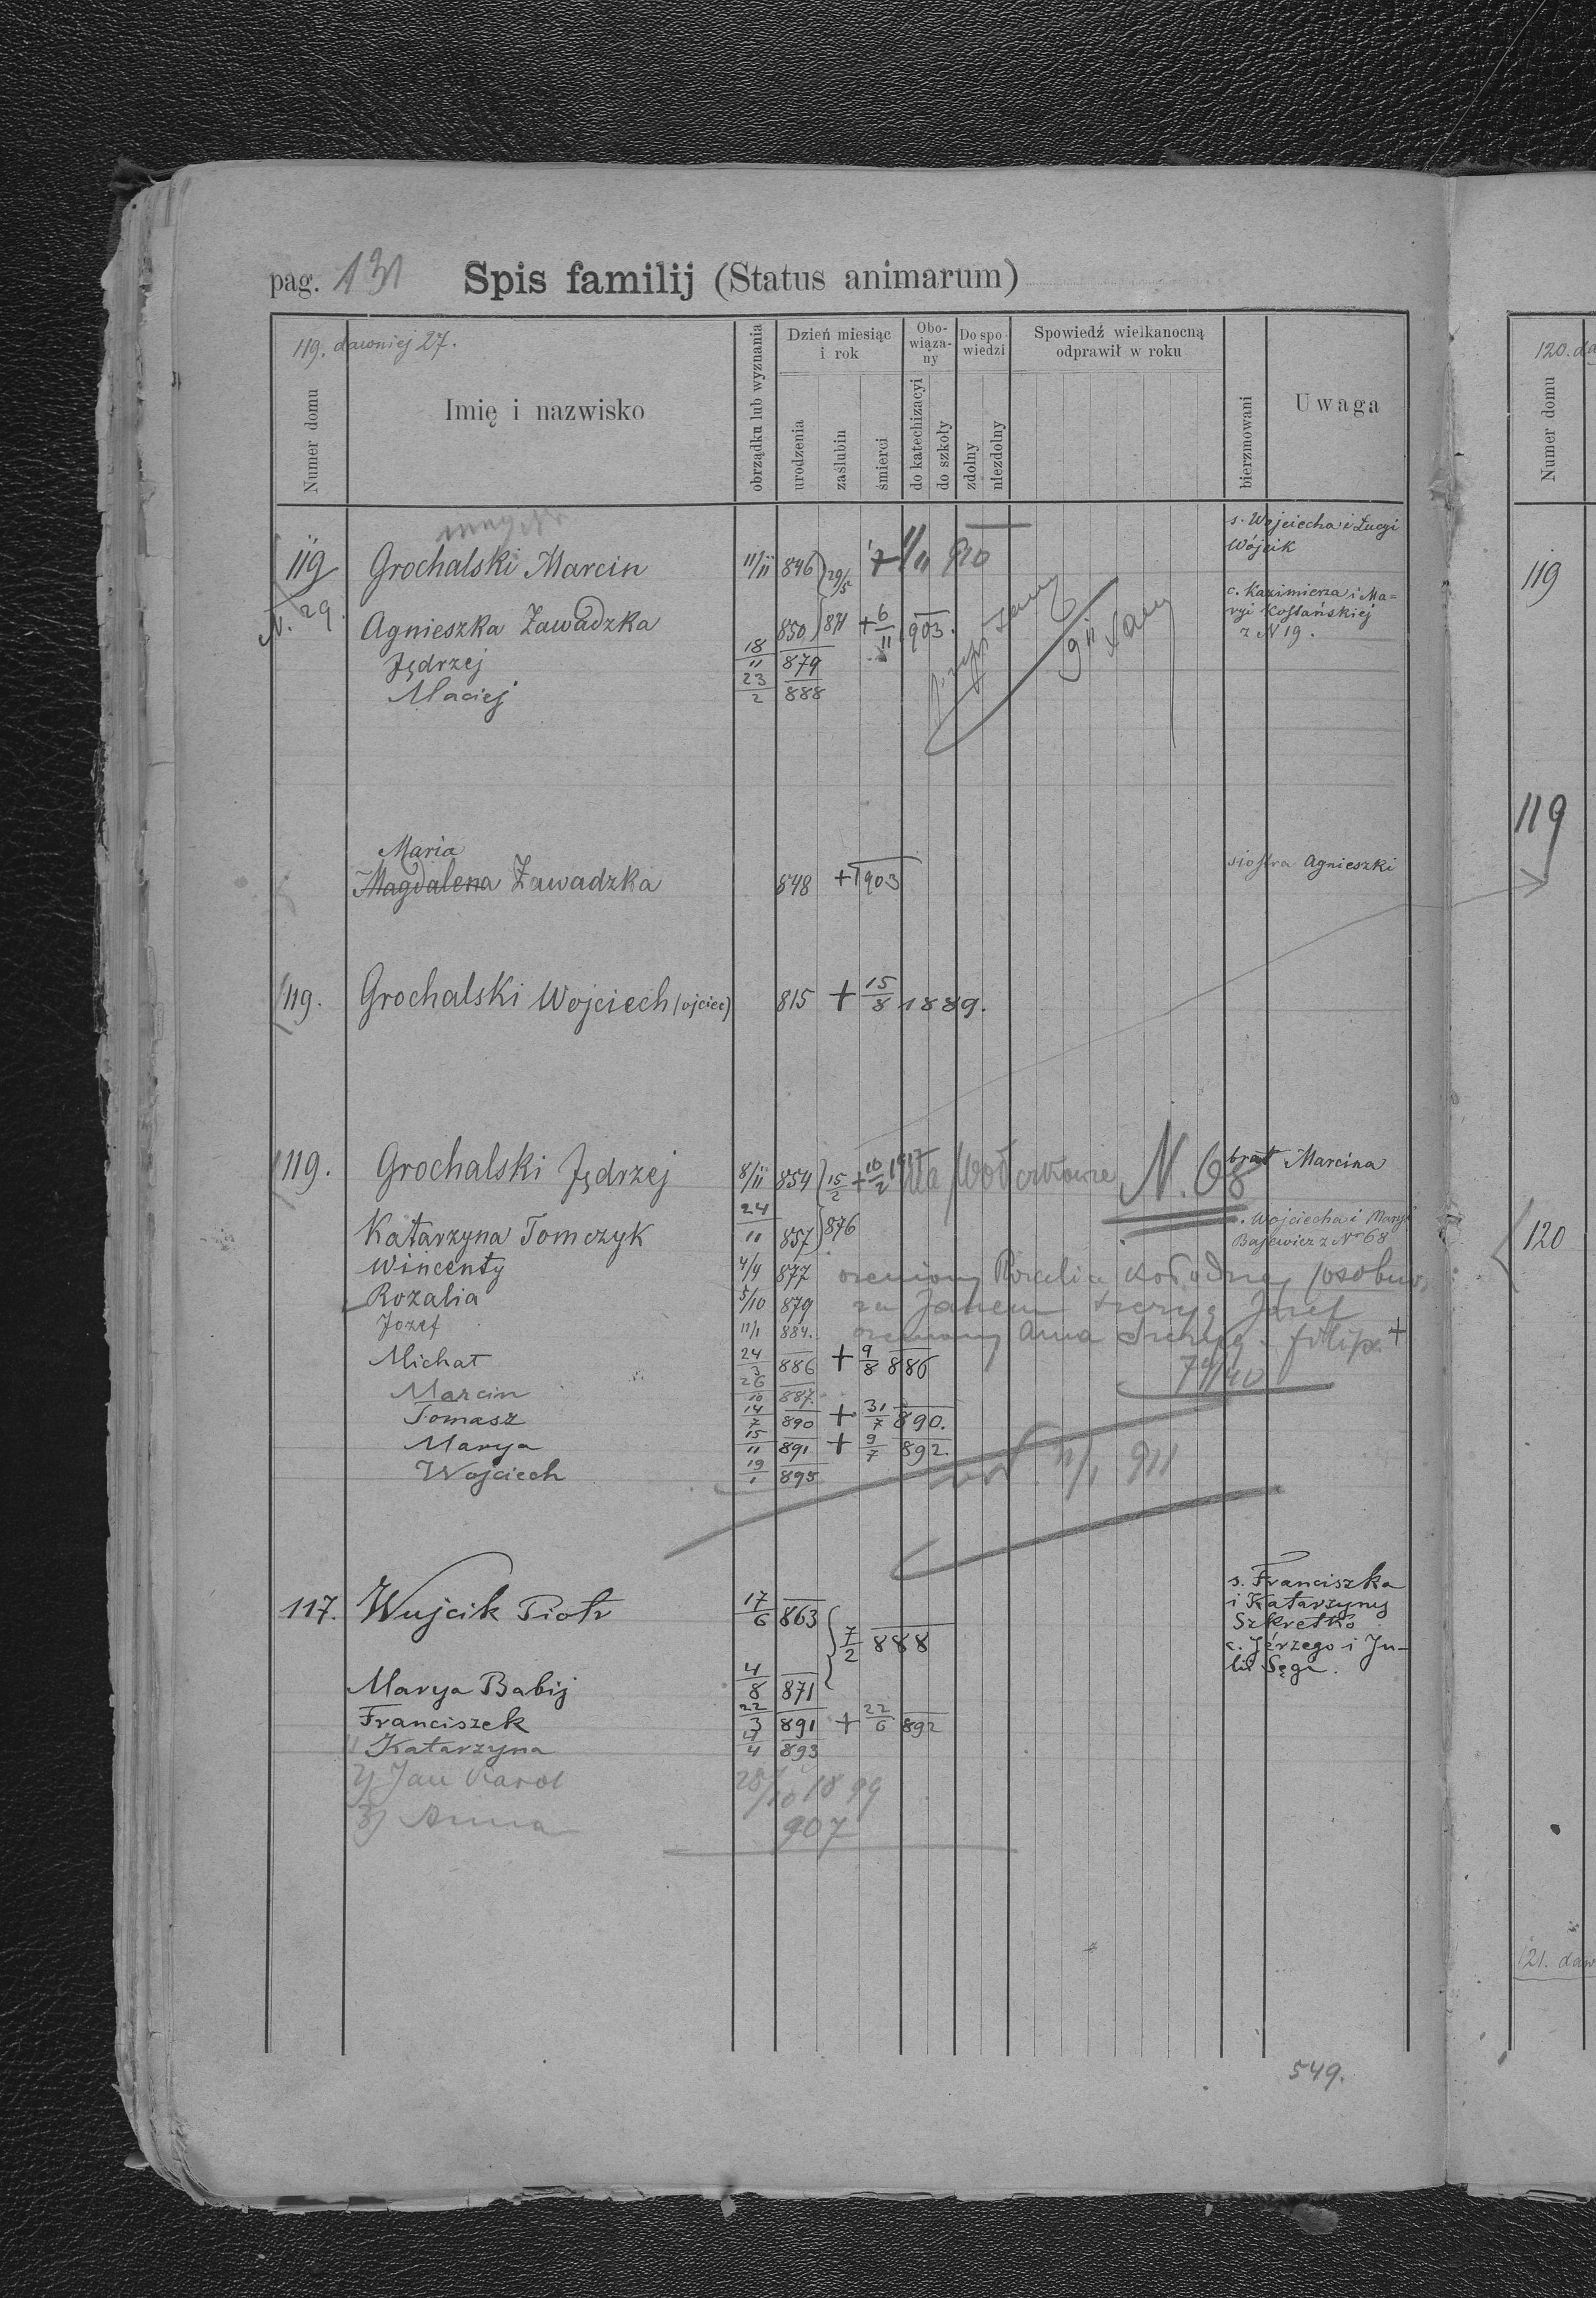 pag. 131 Spis familij (Status animarum)
119. dawniej 27.
Numer domu
Imię i nazwisko
obrządku lub wyznania
Dzień miesiąc i rok
urodzenia
zaślubin
śmierci
Obowiąza-ny
do katechizacyi
do szkoły
Do spowiedzi
zdolny
niezdolny
Spowiedź wielkanocną odprawił w roku
bierzmowani
Uwaga
s. Wojciecha i Łucyi
Wójcik
119 Grochalski Marcin 11/11 846 29/5 + 1/11 910
N. 29.
c. Kazimierza i Ma=
ryi Kossańskiej
z N 19.
Agnieszka Zawadzka 850 871 + 6/11 903.
Jędrzej 18/11 879
Maciej 23/2 888
Maria
Magdalena Zawadzka 848 + 1903 siostra Agnieszki
119. Grochalski Wojciech (ojciec) 815 + 15/8 1889.
119. Grochalski Jędrzej 8/11 854 15/2 + 10/2 1917 N. 68 brat Marcina
Katarzyna Tomczyk 24/11 857 876 . Wojciecha i Maryi
Bajewicz z Nr 68
Wincenty 4/4 877 ożeniony Rozalia
Rozalia 5/10 879 za Janem Józef
Jozef 11/1 884. ożeniony Anna +
Michał 24/3 886 + 9/8 886
Marcin 26/10 887.
Tomasz 14/7 890 + 31/7 890.
Marya 15/11 891 + 9/7 892.
Wojciech 19/1 895 11/1 911
117. Wujcik Piotr 17/6 863 7/2 888
s. Franciszka
i Katarzyny
Szkretko
c. Jérzego i Ju-
lii Sęga.
Marya Babij 4/8 871
Franciszek 22/3 891 + 22/6 892
1) Katarzyna 4/4 893
2) Jan Karol 28/10 1899
3) Anna 907
549.
120. da
Numer domu
119
119
120
121. daw